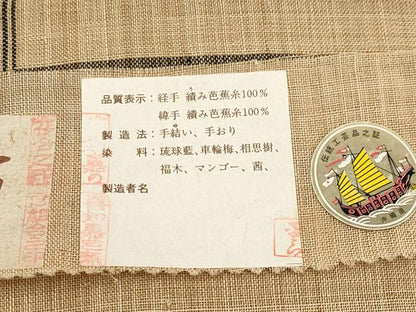 品質表示：経手 績み芭蕉糸100%
緯手 績み芭蕉糸100%
製造法：手結い、手おり
染料：琉球藍、車輪梅、相思樹、
福木、マンゴー、茜、
製造者名
伝統工芸品之証